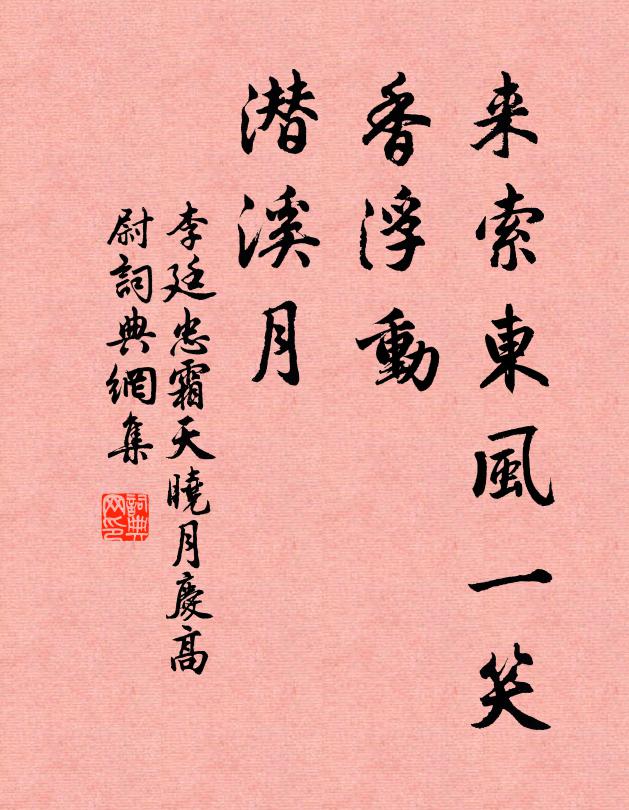 来索東風一笑
香浮動
潜溪月
李廷忠霜天曉月慶高
尉詞典網集
詞典
网印